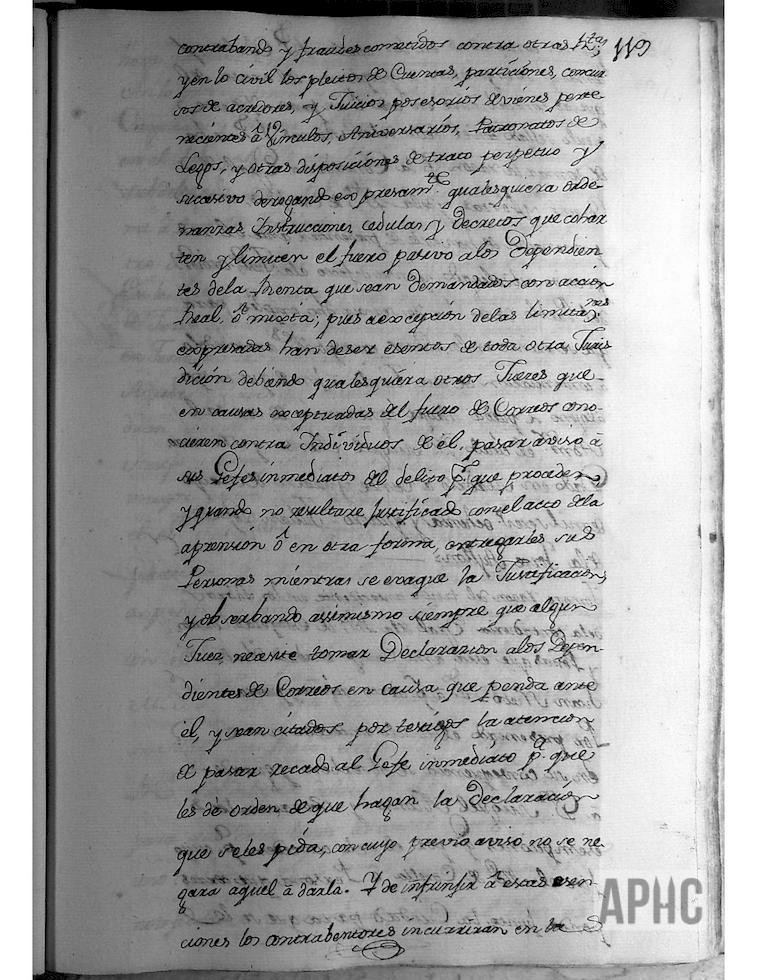 119
contrabando y fraudes cometidos contra otras Rtas;
y en lo civil los pleitos de Cuentas, particiones, concur
sos de acredores, y Juicios posesorios de vienes perte-
necientes â Vinculos, Aniversarios, Patronatos de
Legos, y otras disposiciones de tracto perpetuo y
sucesivo derogando expresamte. qualesquiera orde-
nanzas Instrucciones cedulas y decretos que cohar
ten y limiten el fuero pasivo a los Dependien
tes dela Renta que sean demandados con acción
Real, ô mixta; pues a excepción delas limitanes.
expresadas han de ser esentos de toda otra Juris
dición debiendo qualesquiera otros Jueces que
en causas exceptuadas del fuero de Correos cono-
cieren contra Individuos de él, pasar aviso a
sus Gefes inmediatos del delito pr. que proceden
y quando no resultare Justificado con el acto dela
aprension ô en otra forma, entregarles sus
Personas mientras se evaque la Justificacion,
y observando assimismo siempre que algun
Juez necesite tomar Declarazion alos Depen-
dientes de Correos en causa que penda ante
él, y sean citados por testigos la atencion
de pasar recado al Gefe inmediato pa. que
les dé orden de que hagan la Declaración
que seles pida, con cuyo previo aviso no se ne-
gara aquel â darla. Y de infrinjir â estas esen-
ciones los contrabentores incurriran en la
APHC